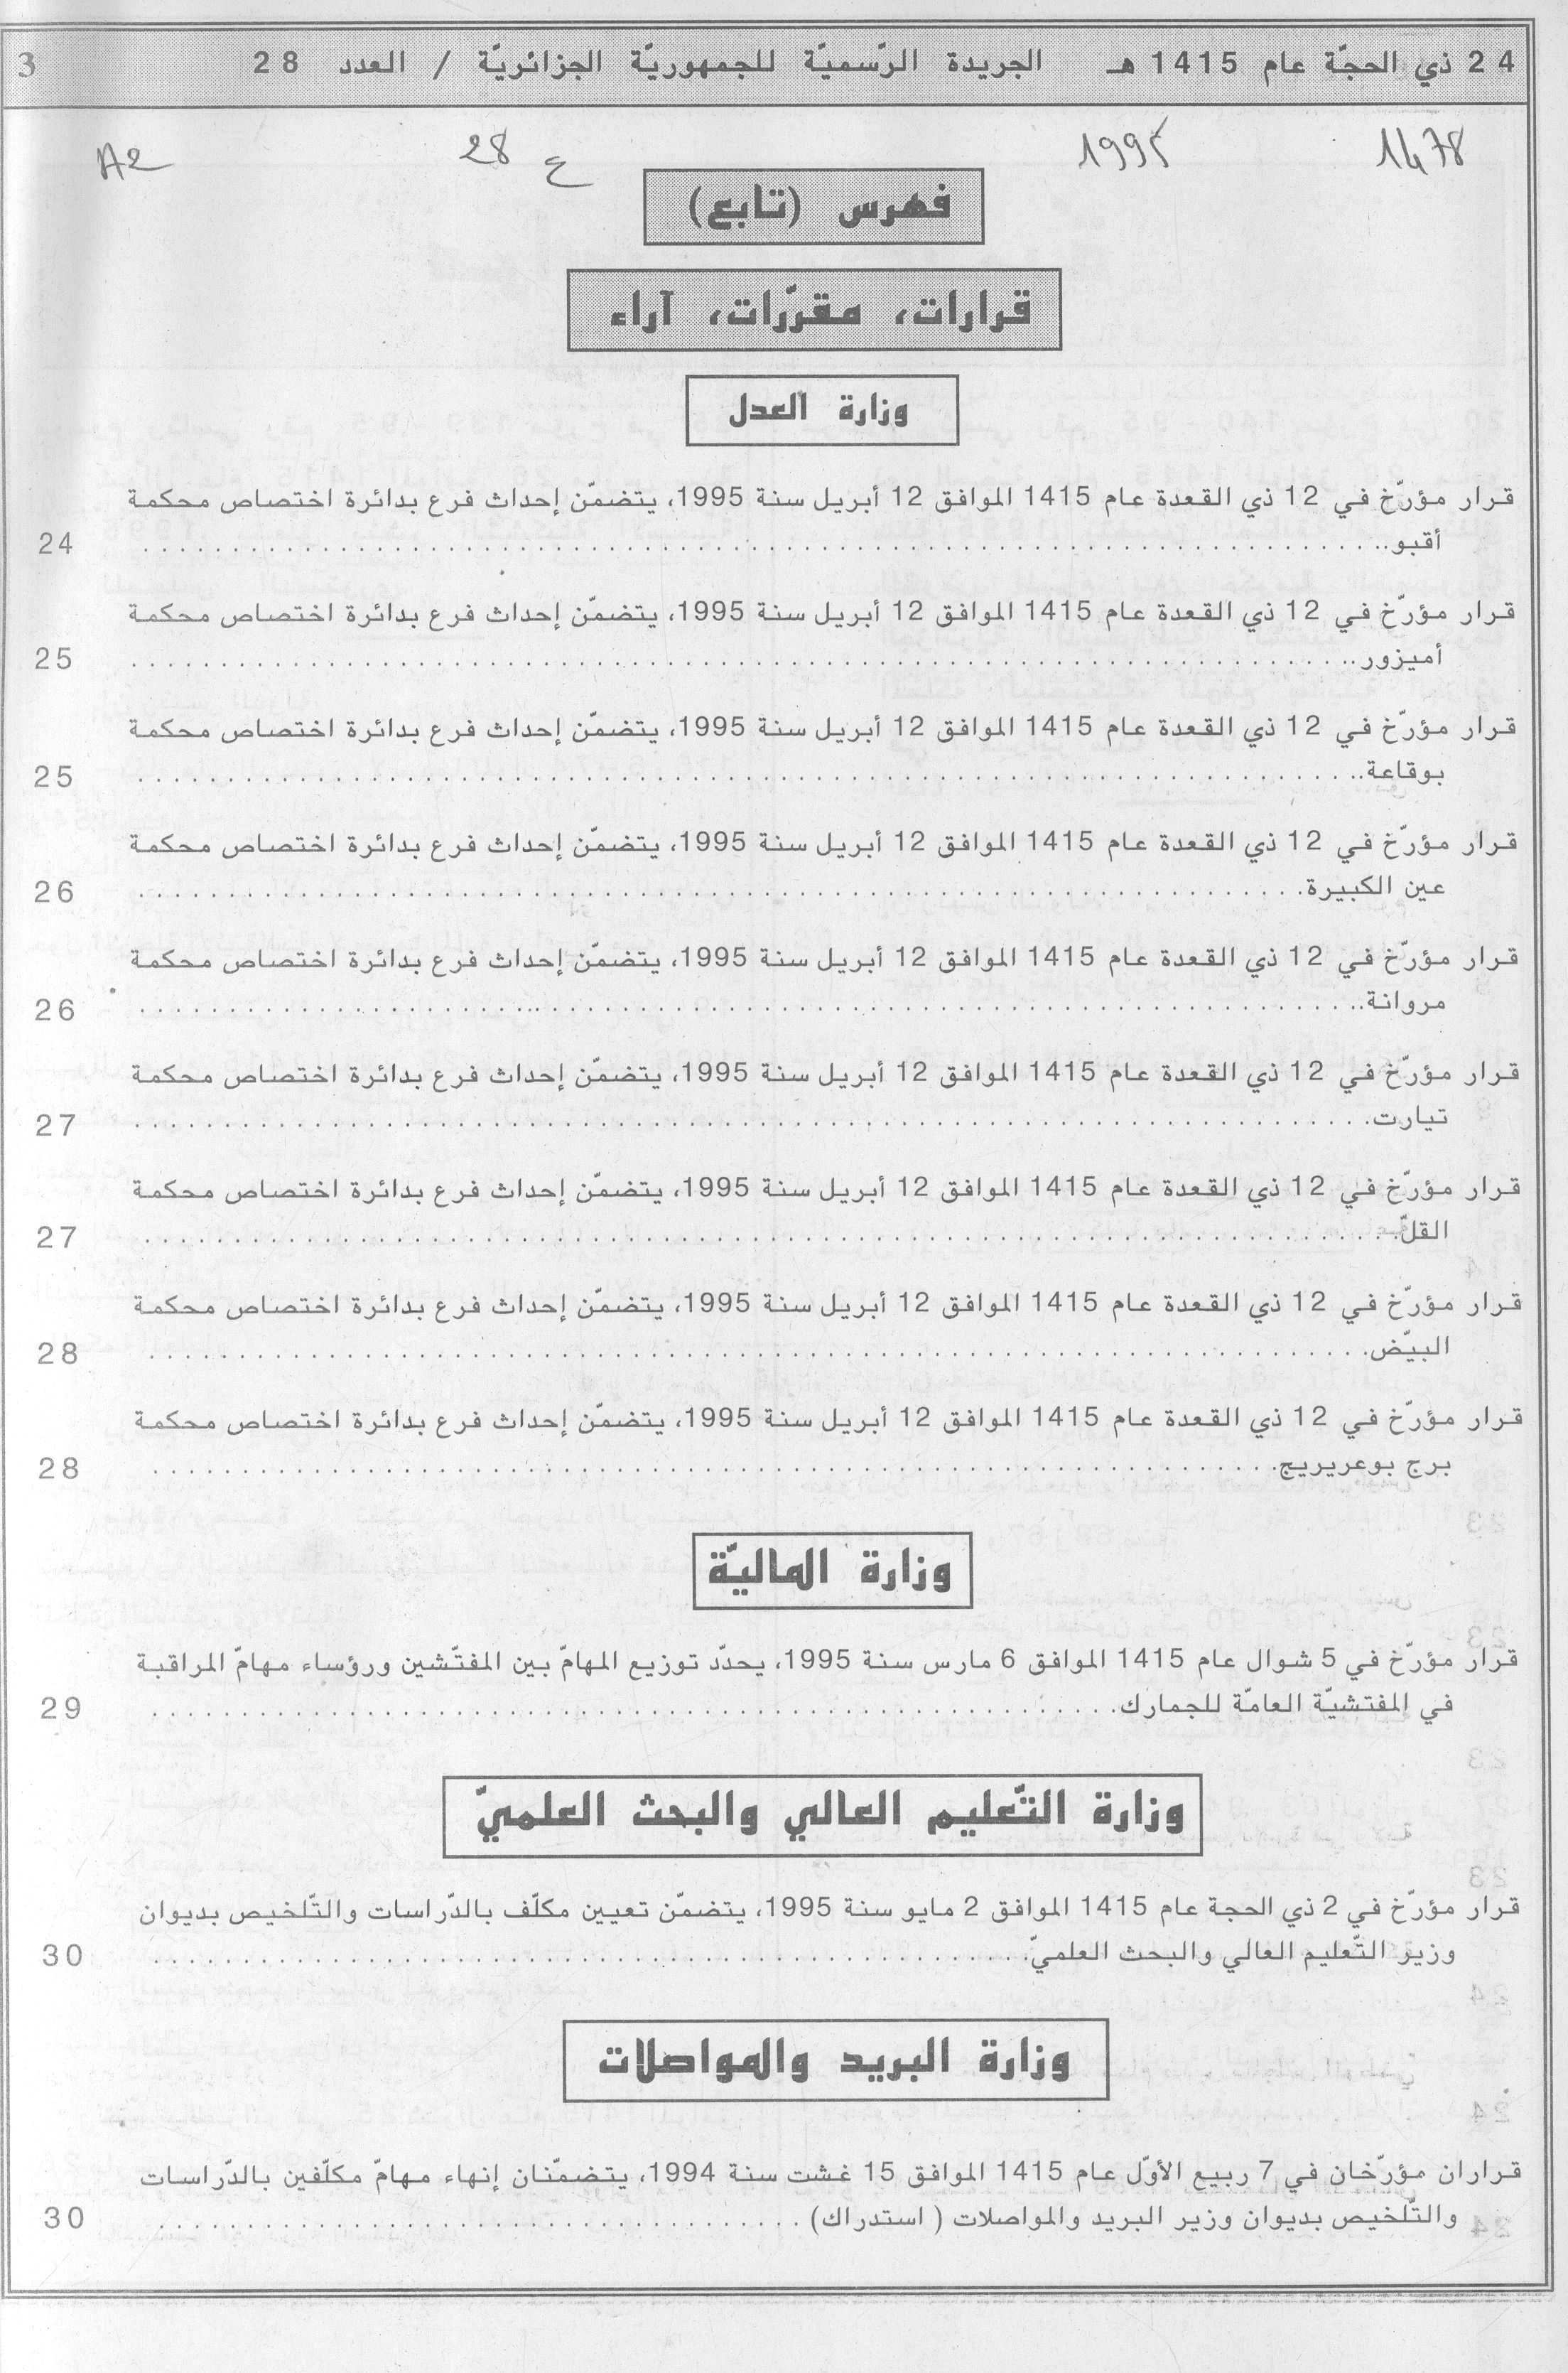 24 ذي الحجّة عام 1415 هـ الجريدة الرّسميّة للجمهوريّة الجزائريّة / العدد 28 3
1478 1995 ع 28 A2
فهرس (تابع)
قرارات، مقرّرات، آراء
وزارة العدل
قرار مؤرّخ في 12 ذي القعدة عام 1415 الموافق 12 أبريل سنة 1995، يتضمّن إحداث فرع بدائرة اختصاص محكمة
أقبو 24
قرار مؤرّخ في 12 ذي القعدة عام 1415 الموافق 12 أبريل سنة 1995، يتضمّن إحداث فرع بدائرة اختصاص محكمة
أميزور 25
قرار مؤرّخ في 12 ذي القعدة عام 1415 الموافق 12 أبريل سنة 1995، يتضمّن إحداث فرع بدائرة اختصاص محكمة
بوقاعة 25
قرار مؤرّخ في 12 ذي القعدة عام 1415 الموافق 12 أبريل سنة 1995، يتضمّن إحداث فرع بدائرة اختصاص محكمة
عين الكبيرة 26
قرار مؤرّخ في 12 ذي القعدة عام 1415 الموافق 12 أبريل سنة 1995، يتضمّن إحداث فرع بدائرة اختصاص محكمة
مروانة 26
قرار مؤرّخ في 12 ذي القعدة عام 1415 الموافق 12 أبريل سنة 1995، يتضمّن إحداث فرع بدائرة اختصاص محكمة
تيارت 27
قرار مؤرّخ في 12 ذي القعدة عام 1415 الموافق 12 أبريل سنة 1995، يتضمّن إحداث فرع بدائرة اختصاص محكمة
القلّ 27
قرار مؤرّخ في 12 ذي القعدة عام 1415 الموافق 12 أبريل سنة 1995، يتضمّن إحداث فرع بدائرة اختصاص محكمة
البيّض 28
قرار مؤرّخ في 12 ذي القعدة عام 1415 الموافق 12 أبريل سنة 1995، يتضمّن إحداث فرع بدائرة اختصاص محكمة
برج بوعريريج 28
وزارة الماليّة
قرار مؤرّخ في 5 شوال عام 1415 الموافق 6 مارس سنة 1995، يحدّد توزيع المهامّ بين المفتّشين ورؤساء مهامّ المراقبة
في المفتشيّة العامّة للجمارك 29
وزارة التّعليم العالي والبحث العلميّ
قرار مؤرّخ في 2 ذي الحجة عام 1415 الموافق 2 مايو سنة 1995، يتضمّن تعيين مكلّف بالدّراسات والتّلخيص بديوان
وزير التّعليم العالي والبحث العلميّ 30
وزارة البريد والمواصلات
قراران مؤرّخان في 7 ربيع الأوّل عام 1415 الموافق 15 غشت سنة 1994، يتضمّنان إنهاء مهامّ مكلّفين بالدّراسات
والتّلخيص بديوان وزير البريد والمواصلات ( استدراك) 30